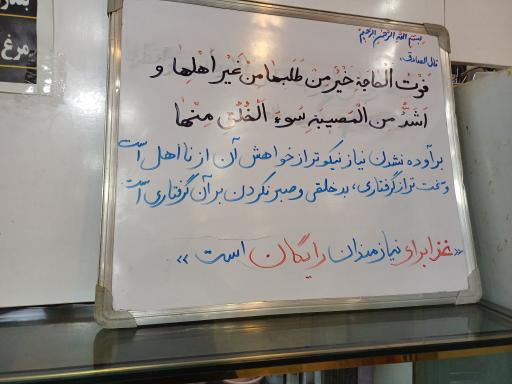 بسم الله الرحمن الرحیم
قال الصادق:
فَوْتُ الْحاجَةِ خَیْرٌ مِنْ طَلَبِها مِنْ غَیْرِ اَهْلِها وَ
اَشَدُّ مِنَ الْمُصیبَةِ سُوءُ الْخُلْقِ مِنْها
برآورده نشدن نیاز نیکوتر از خواهش آن از نااهل است
و سخت تر از گرفتاری، بدخلقی و صبر نکردن بر آن گرفتاری است
«غذا برای نیازمندان رایگان است»
مرغ